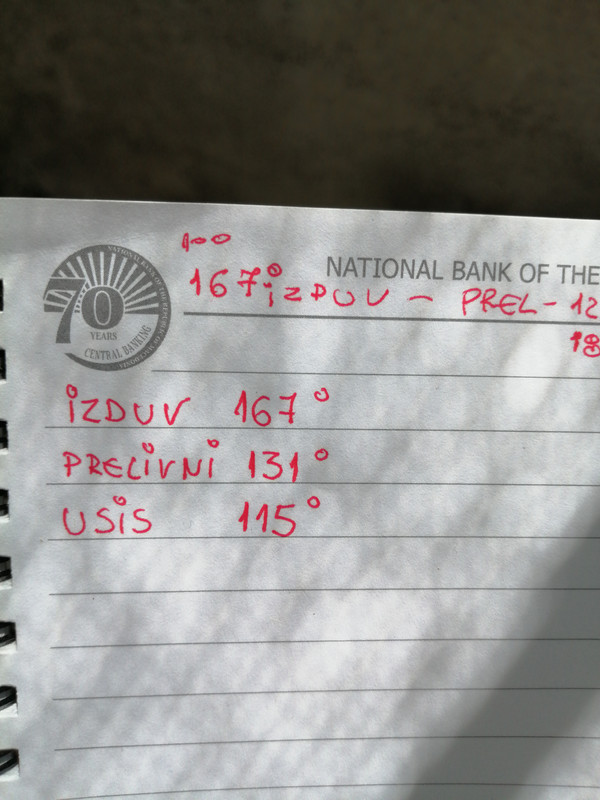 NATIONAL BANK OF THE
70
YEARS
CENTRAL BANKING
167° iZDUV - PREL - 12
18
iZDUV 167°
PRELiVNi 131°
USiS 115°